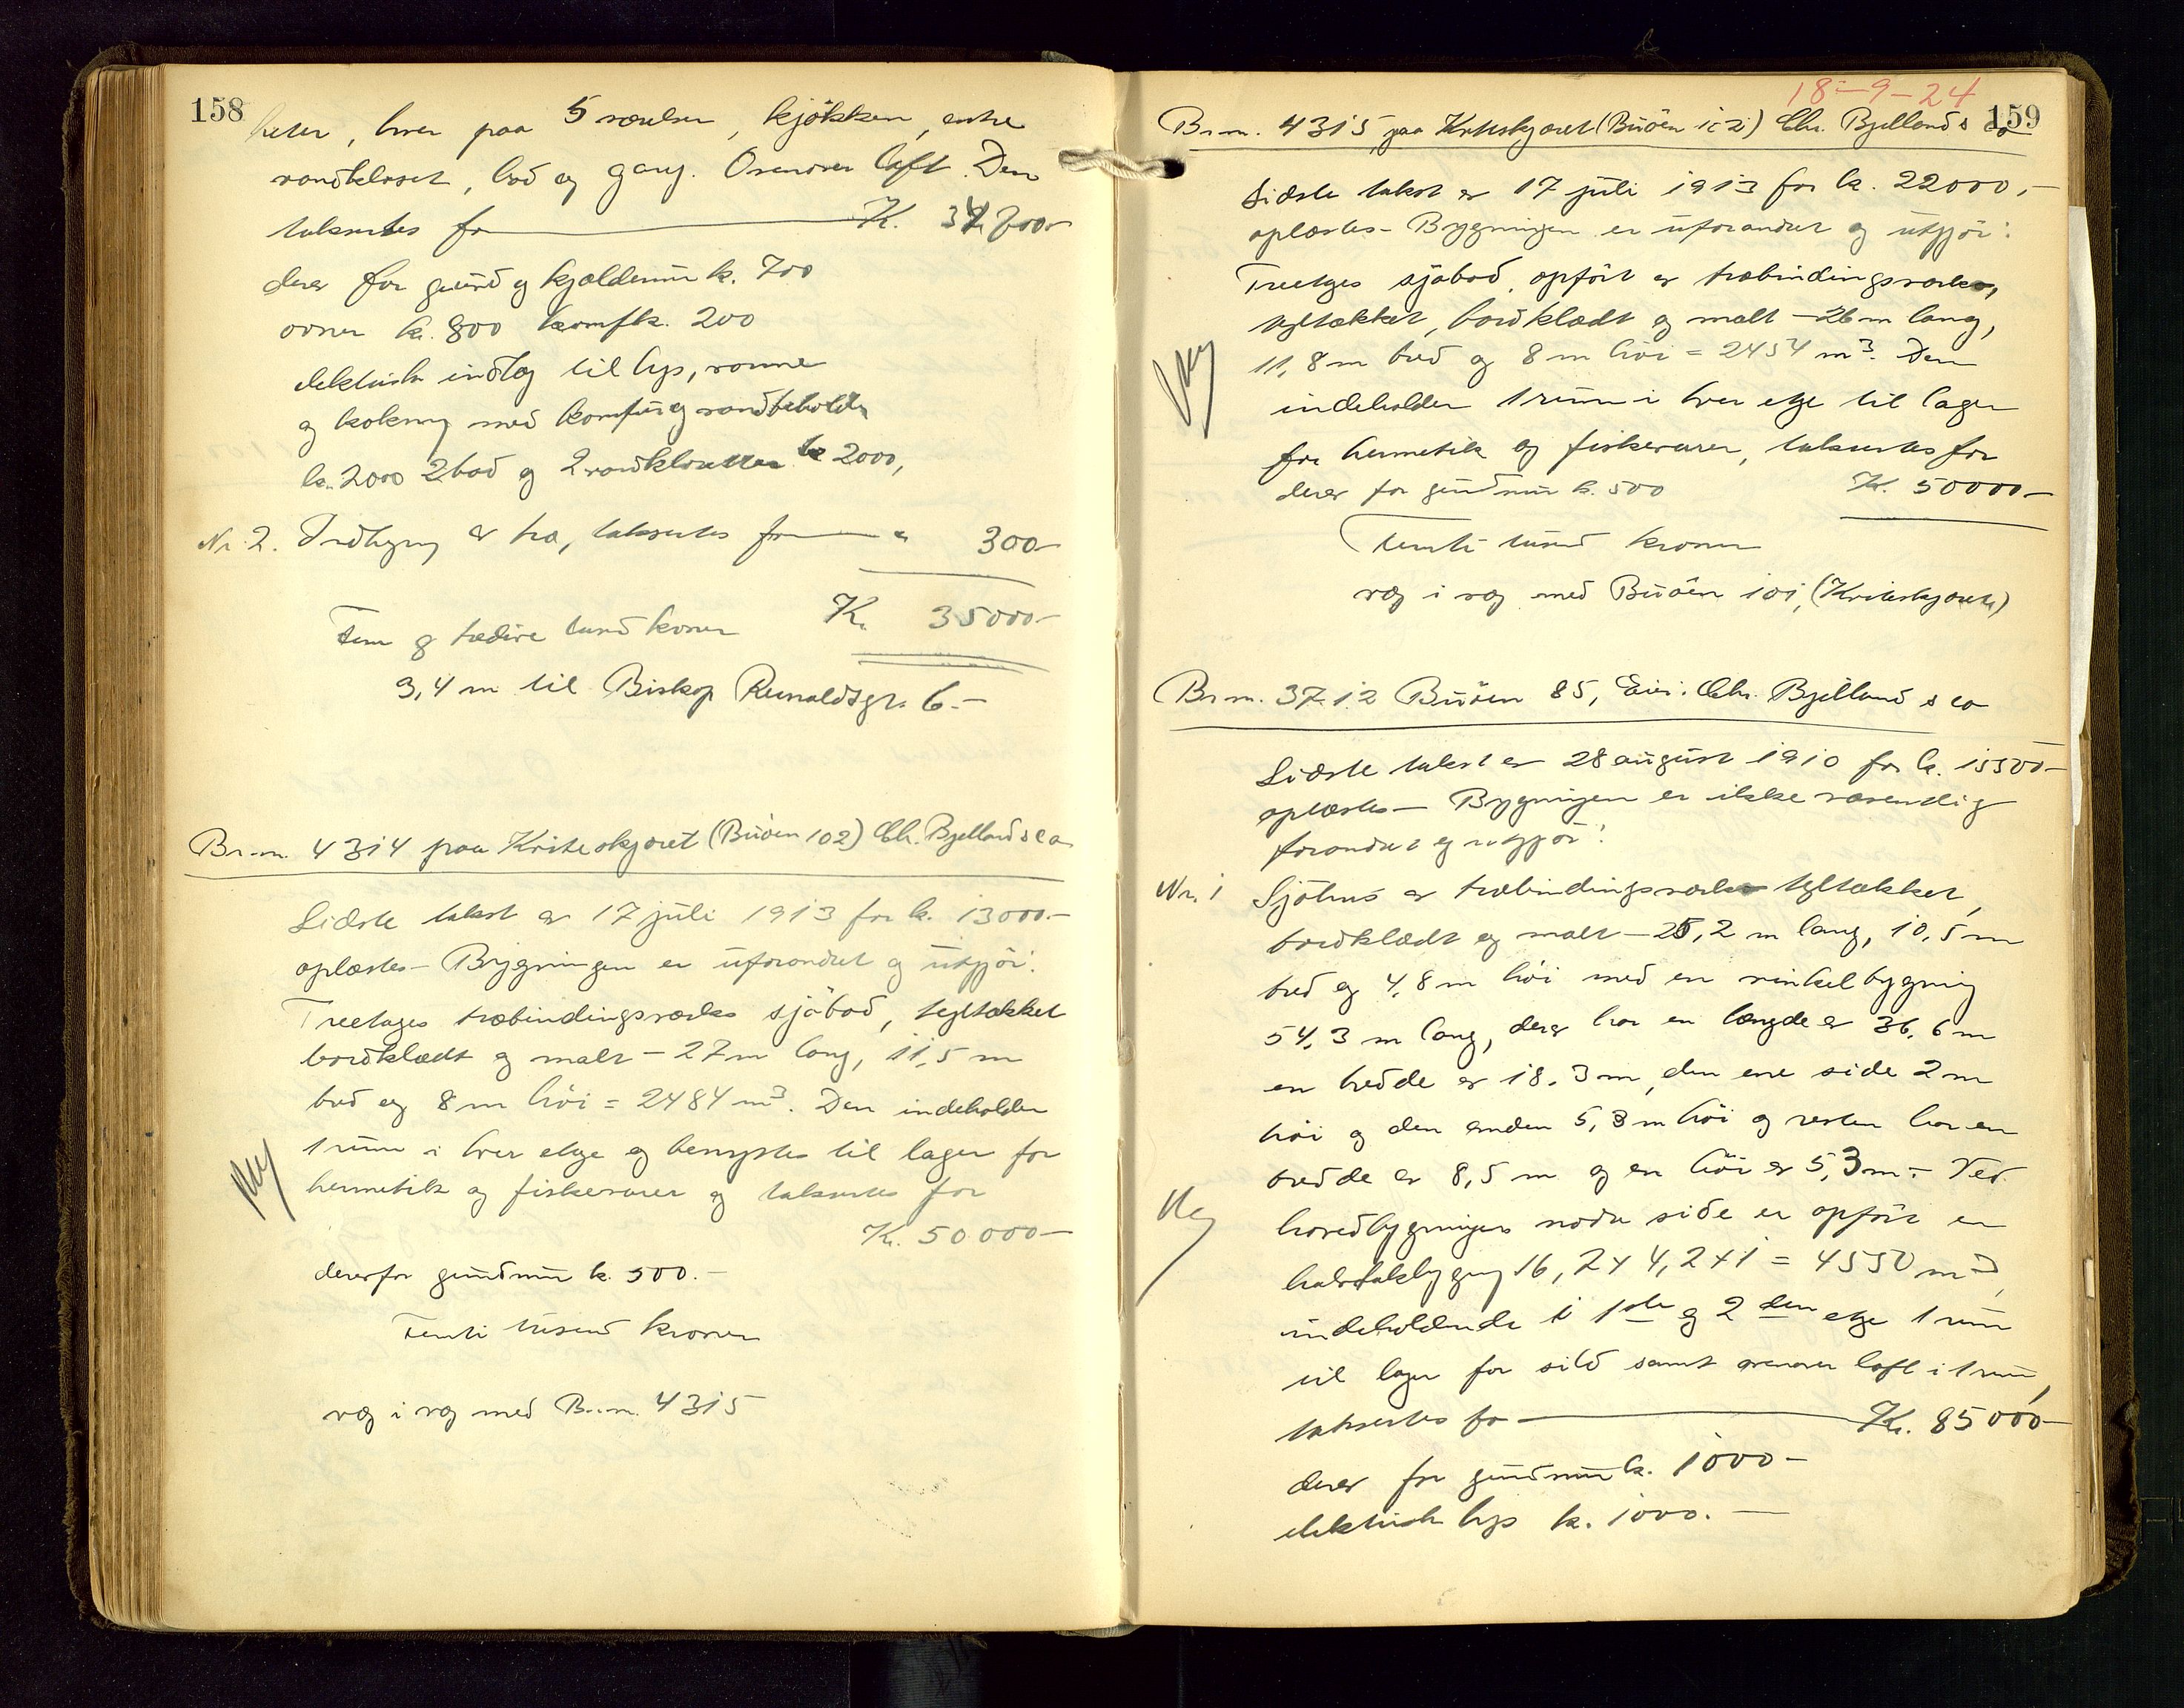 158
heter, hver paa 5 værelser, kjøkken, entre
vandkloset, bod og gang. Ovenover loft. Den
taksertes for K. 34700-
derav for grund og kjældermur k. 700
ovner k. 800 komf k. 200
elektrisk indlæg til lys, varme
og kokning med komfur og vandbeholder
k. 2000 2 bad og 2 vandklosetter k 2000,
Nr. 2. Indhegning av træ, taksertes for " 300-
Fem og tredive tusend kroner K. 35000-
3,4 m til Biskop Reinaldsgt. 6.-
Br.nr. 4314 paa Kriteskjæret (Buøen 102) Chr. Bjelland & Co
Sidste takst er 17 juli 1913 for k. 13000.-
oplæstes- Bygningen er uforandret og utgjør:
Treetages træbindingsverks sjøbod, tegltækket
bordklædt og malt - 27 m lang, 11,5 m
bred og 8 m høi = 2484 m³. Den indeholder
1 rum i hver etge og benyttes til lager for
hermetik og fiskevarer og taksertes for
K. 50000-
derav for grundmur k. 500.-
Femti tusend kroner
væg i væg med Br.nr. 4315
18-9-24
159
Br.nr. 4315 paa Kriteskjæret (Buøen 102) Chr. Bjelland & Co
Sidste takst er 17 juli 1913 for k. 22000,-
oplæstes- Bygningen er uforandret og utgjør:
Treetges sjøbod, opført av træbindingsverk,
tegltækket, bordklædt og malt - 26 m lang,
11,8 m bred og 8 m høi = 2454 m³. Den
indeholder 1 rum i hver etge til lager
for hermetik og fiskevarer, taksertes for
derav for grundmur k. 500 Kr. 50000-
Femti tusend kroner
væg i væg med Buøen 101, (Kriteskjæret)
Br.nr. 3712 Buøen 85, Eier: Chr. Bjelland & Co
Sidste takst er 28 august 1910 for k. 15500-
oplæstes- Bygningen er ikke væsendlig
forandret og utgjør:
Nr. 1 Sjøhus av træbindingsverk tegltækket,
bordklædt og malt - 25,2 m lang, 10,5 m
bred og 4,8 m høi med en vinkelbygning
54,3 m lang, derav har en længde av 36,6 m
en bredde av 18,3 m, den ene side 2 m
høi og den anden 5,3 m høi og resten har en
bredde av 8,5 m og en høi av 5,3 m.- Ved
hovedbygningens nordre side er opført en
halvtakbygning 16,2 x 4,2 x 1 = 4550 m³,
indeholdende i 1ste og 2den etge 1 rum
til lager for sild samt ovenover loft i 1 rum,
taksertes for Kr. 85000-
derav for grundmur k. 1000-
elektrisk lys k. 1000.-